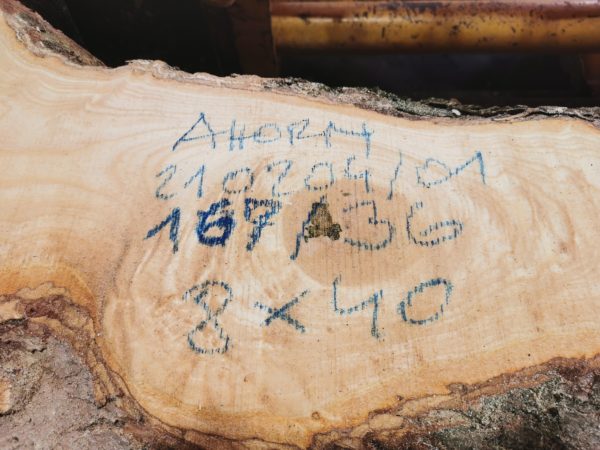 AHORN
210204/01
167,36
8x40